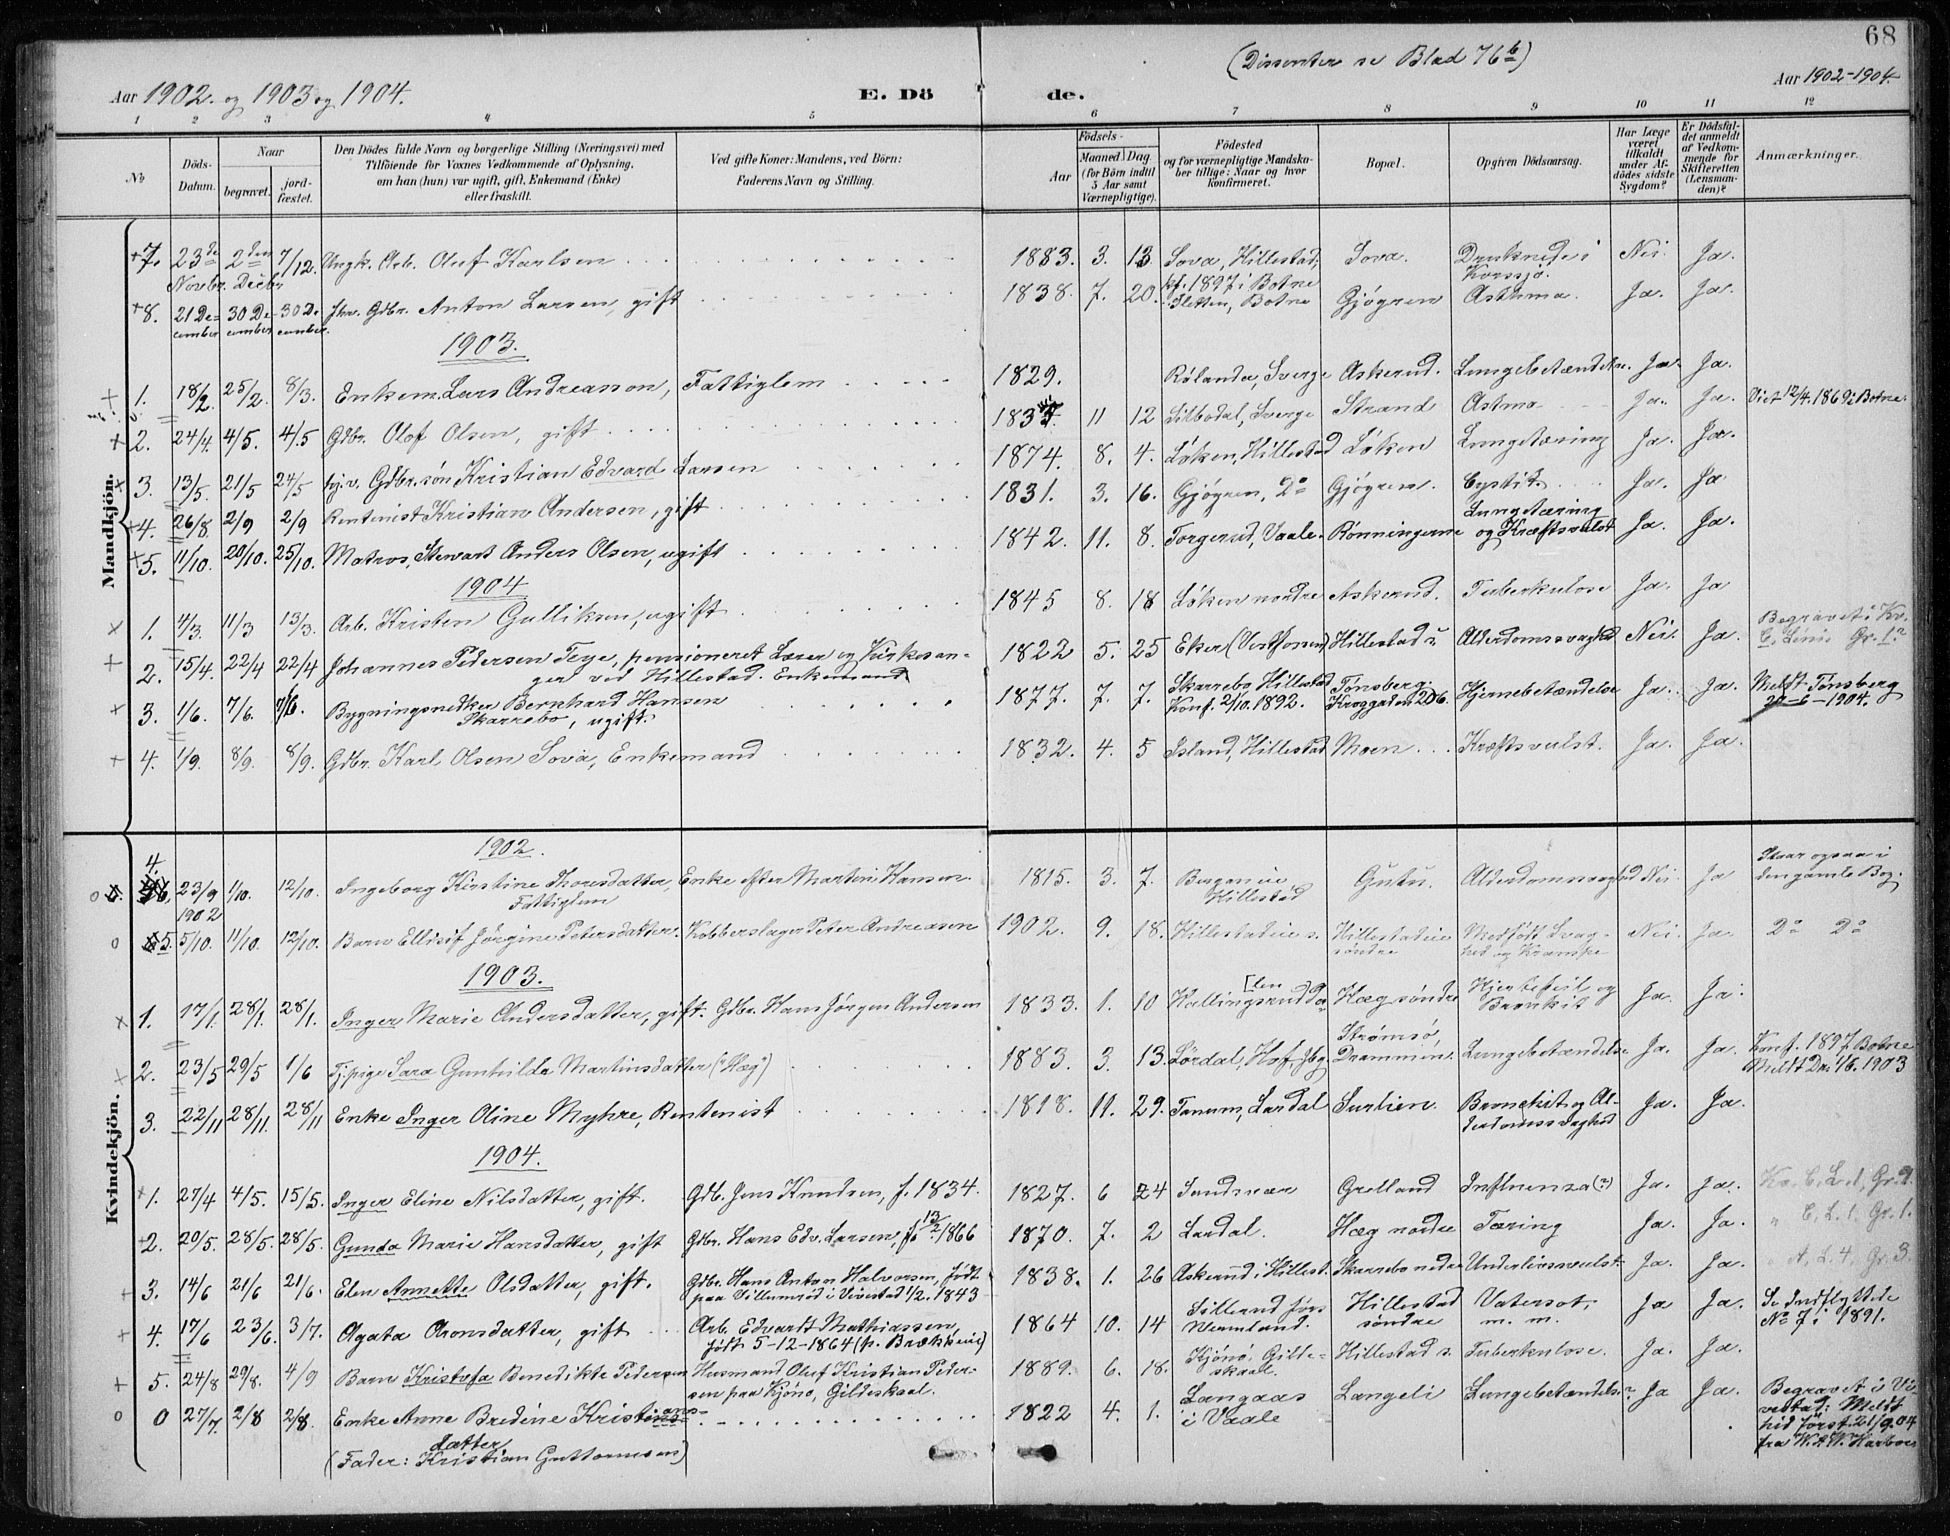 68
(Dissenter se Blad 76b)
Aar 1902. og 1903 og 1904.
E. Dö de.
Aar 1902-1904.
1 2 3 4 5 6 7 8 9 10 11 12
No
Döds-Datum.
Naar
begravet.
jord-fæstet.
Den Dödes fulde Navn og borgerlige Stilling (Næringsvei) med
Tilföiende for Voxnes Vedkommende af Oplysning,
om han (hun) var ugift, gift, Enkemand (Enke)
eller fraskilt.
Ved gifte Koner: Mandens, ved Börn:
Faderens Navn og Stilling.
Födsels-
Aar
Maaned. Dag
(for Börn indtil
5 Aar samt
Værnepligtige).
Födested
og for værnepligtige Mandska-
ber tillige: Naar og hvor
konfirmeret.
Bopæl.
Opgiven Dödsaarsag.
Har Læge
været
tilkaldt
under Af-
dödes sidste
Sygdom?
Er Dödsfal-
det anmeldt
af Vedkom-
mende for
Skifteretten
(Lensman-
den)?
Anmærkninger.
Mandkjön.
7. 23de Novbr. 2den Decbr 7/12. Ungk. Arb. Oluf Karlsen 1883. 3. 13 Sova, Hillestad, kf. 1897 i Botne Sova. Druknede i Korssjø. Nei. Ja.
8. 21 December 30 December 30 December. Fhv. Gdbr. Anton Larsen, gift 1838. 7. 20. Sletten, Botne Gjøgren Asthma. Ja. Ja.
1903.
1. 18/2 25/2. 8/3. Enkem. Lars Andreasson, Fattiglem 1829. Rølanda, Sverge Askerud. Lungebetændelse. Ja. Ja.
2. 24/4. 4/5. 4/5 Gdbr. Olof Olsen, gift 11 12 Silbodal, Sverge Strand Astma Ja. Ja. Viet 12/4. 1869 i Botne.
3. 13/5. 21/5 24/5 hj.v. Gdbr.søn Kristian Edvard Larsen 1874. 8. 4. Løken, Hillestad Løken Lungetæring Ja. Ja.
4. 26/8 2/9 2/9 Rentenist Kristian Andersen, gift 1831. 3. 16. Gjøgren, Do Gjøgren. Cystit. Ja. Ja
5. 11/10. 20/10. 25/10. Matros, Stewart Anders Olsen, ugift 1842. 11. 8. Torgerud, Vaale. Rønningerne Lungetæring og Kræftsvulst Ja. Ja.
1904
1. 4/3. 11/3 13/3. Arb. Kristen Gulliksen, ugift 1845 8. 18 Løken nordre Askerud. Tuberkulose Ja. Ja
2. 15/4. 22/4 22/4 Johannes Pedersen Teye, pensioneret Lærer og Kirkesanger ved Hillestad. Enkemand 1822 5. 25 Eker (Vestfossen) Hillestad Alderdomssvaghed Nei. Ja. Begravet i Kv. C. Linie Gr. 1
3. 1/6. 7/6. 7/6. Bygningssnedker Bernhard Hansen Skarrebo, ugift. 1877. 7. 7. Skarrebo Hillestad Konf. 2/10. 1892. Tønsberg. Hjernebetændelse Ja. Ja. Meldt Tønsberg 1904.
4. 1/9. 8/9. 8/9. Gdbr. Karl Olsen Sova, Enkemand 1832. 4. 5 Island, Hillestad Moen Kræftsvulst. Ja. Ja.
Kvindekjön.
1902.
4. 23/9 1902 1/10. 12/10. Ingeborg Kirstine Thoresdatter, Enke efter Martin Hansen. Fattiglem 1815. 3. 7. Berganeie Hillestad Gutu. Alderdomssvaghed Nei. Ja Staar ogsaa i den gamle Bog.
5. 5/10. 11/10. 12/10. Barn Ellisif Jørgine Petersdatter. Kobberslager Peter Andreasen 1902. 9. 18. Hillestadeie s. Hillestadeie søndre Medfødt Svaghed og Krampe Nei. Ja. Do Do
1903.
1. 17/1. 28/1. 28/1. Inger Marie Andersdatter, gift. Gdbr. Hans Jørgen Andersen 1833. 1. 10 Hallingsrud Hæg søndre Hjertefeil og Bronkit Ja. Ja.
2. 23/5 29/5 1/6 Tj.pige Sara Gunhilda Martinsdatter ("Hæg") 1883. 3. 13. Lørdal, Hof, Jbg Strømsø, Drammen. Lungebetændelse Ja. Ja. Konf. 1897. Botne Meldt Dr. 1/6. 1903
3. 22/11 28/11. 28/11 Enke Inger Oline Myhre, Rentenist 1818. 11. 29. Tanum, Lardal Surlien. Bronchit og Alderdomssvaghed Ja. Ja.
1904.
1. 27/4 4/5. 15/5. Inger Eline Nilsdatter, gift. Gdb. Jens Knudsen, f. 1834. 1827. 6 24 Sandsvær Grelland Influenza (?) Ja. Ja. Kv. C. L. 1, Gr. 9.
2. 20/5. 28/5. 28/5. Gunda Marie Hansdatter, gift Gdbr. Hans Edv. Larsen, f. 13/2 1866 1870. 7. 2 Lardal. Hæg nordre Tæring Ja. Ja. " C. L. 1. Gr. 1.
3. 14/6 21/6 21/6. Elen Annette Olsdatter, gift. Gdbr. Hans Anton Halvorsen, født paa Villumrød i Vivestad 1/2. 1843 1838. 1. 26 Askerud i Hillest. Skarrebo nedre Underlivssvulst Ja. Ja. A. L. 4, Gr. 3.
4. 17/6 23/6. 3/7. Agata Aronsdatter, gift Arb. Edvardt Mathiassen, født 5-12-1864 1864 10. 14 Sillerud Jøss Wermland. Hillestad søndre Vatersot, m. m. Ja Ja. Se Indflyttede No 7 i 1891.
5. 24/8 29/8. 4/9 Barn Kristofa Benedikte Pedersen Husmand Oluf Kristian Pedersen paa Kjønø, Gildeskaal. 1889. 6. 18. Kjønø, Gildeskaal. Hillestad s. Tuberkulose. Ja. Ja.
0 27/7. 2/8 2/8. Enke Anne Bredine Kristiansdatter (Fader: Kristian Guttormsen) 1822 4. 1. Langaas i Vaale Langeli Lungebetændelse Ja Ja. Begravet i Vivestad: Meldt hid først 21/9. 04 fra